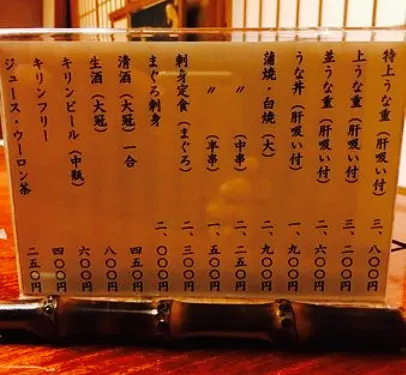 特上うな重（肝吸い付）三、八〇〇円
上うな重（肝吸い付）三、二〇〇円
並うな重（肝吸い付）二、六〇〇円
うな丼（肝吸い付）一、九〇〇円
蒲焼・白焼（大）二、九〇〇円
〃（中串）二、二五〇円
〃（半串）一、五〇〇円
刺身定食（まぐろ）二、三〇〇円
まぐろ刺身 二、〇〇〇円
清酒（大冠）一合 四五〇円
生酒（大冠）八〇〇円
キリンビール（中瓶）六〇〇円
キリンフリー 四〇〇円
ジュース・ウーロン茶 二五〇円